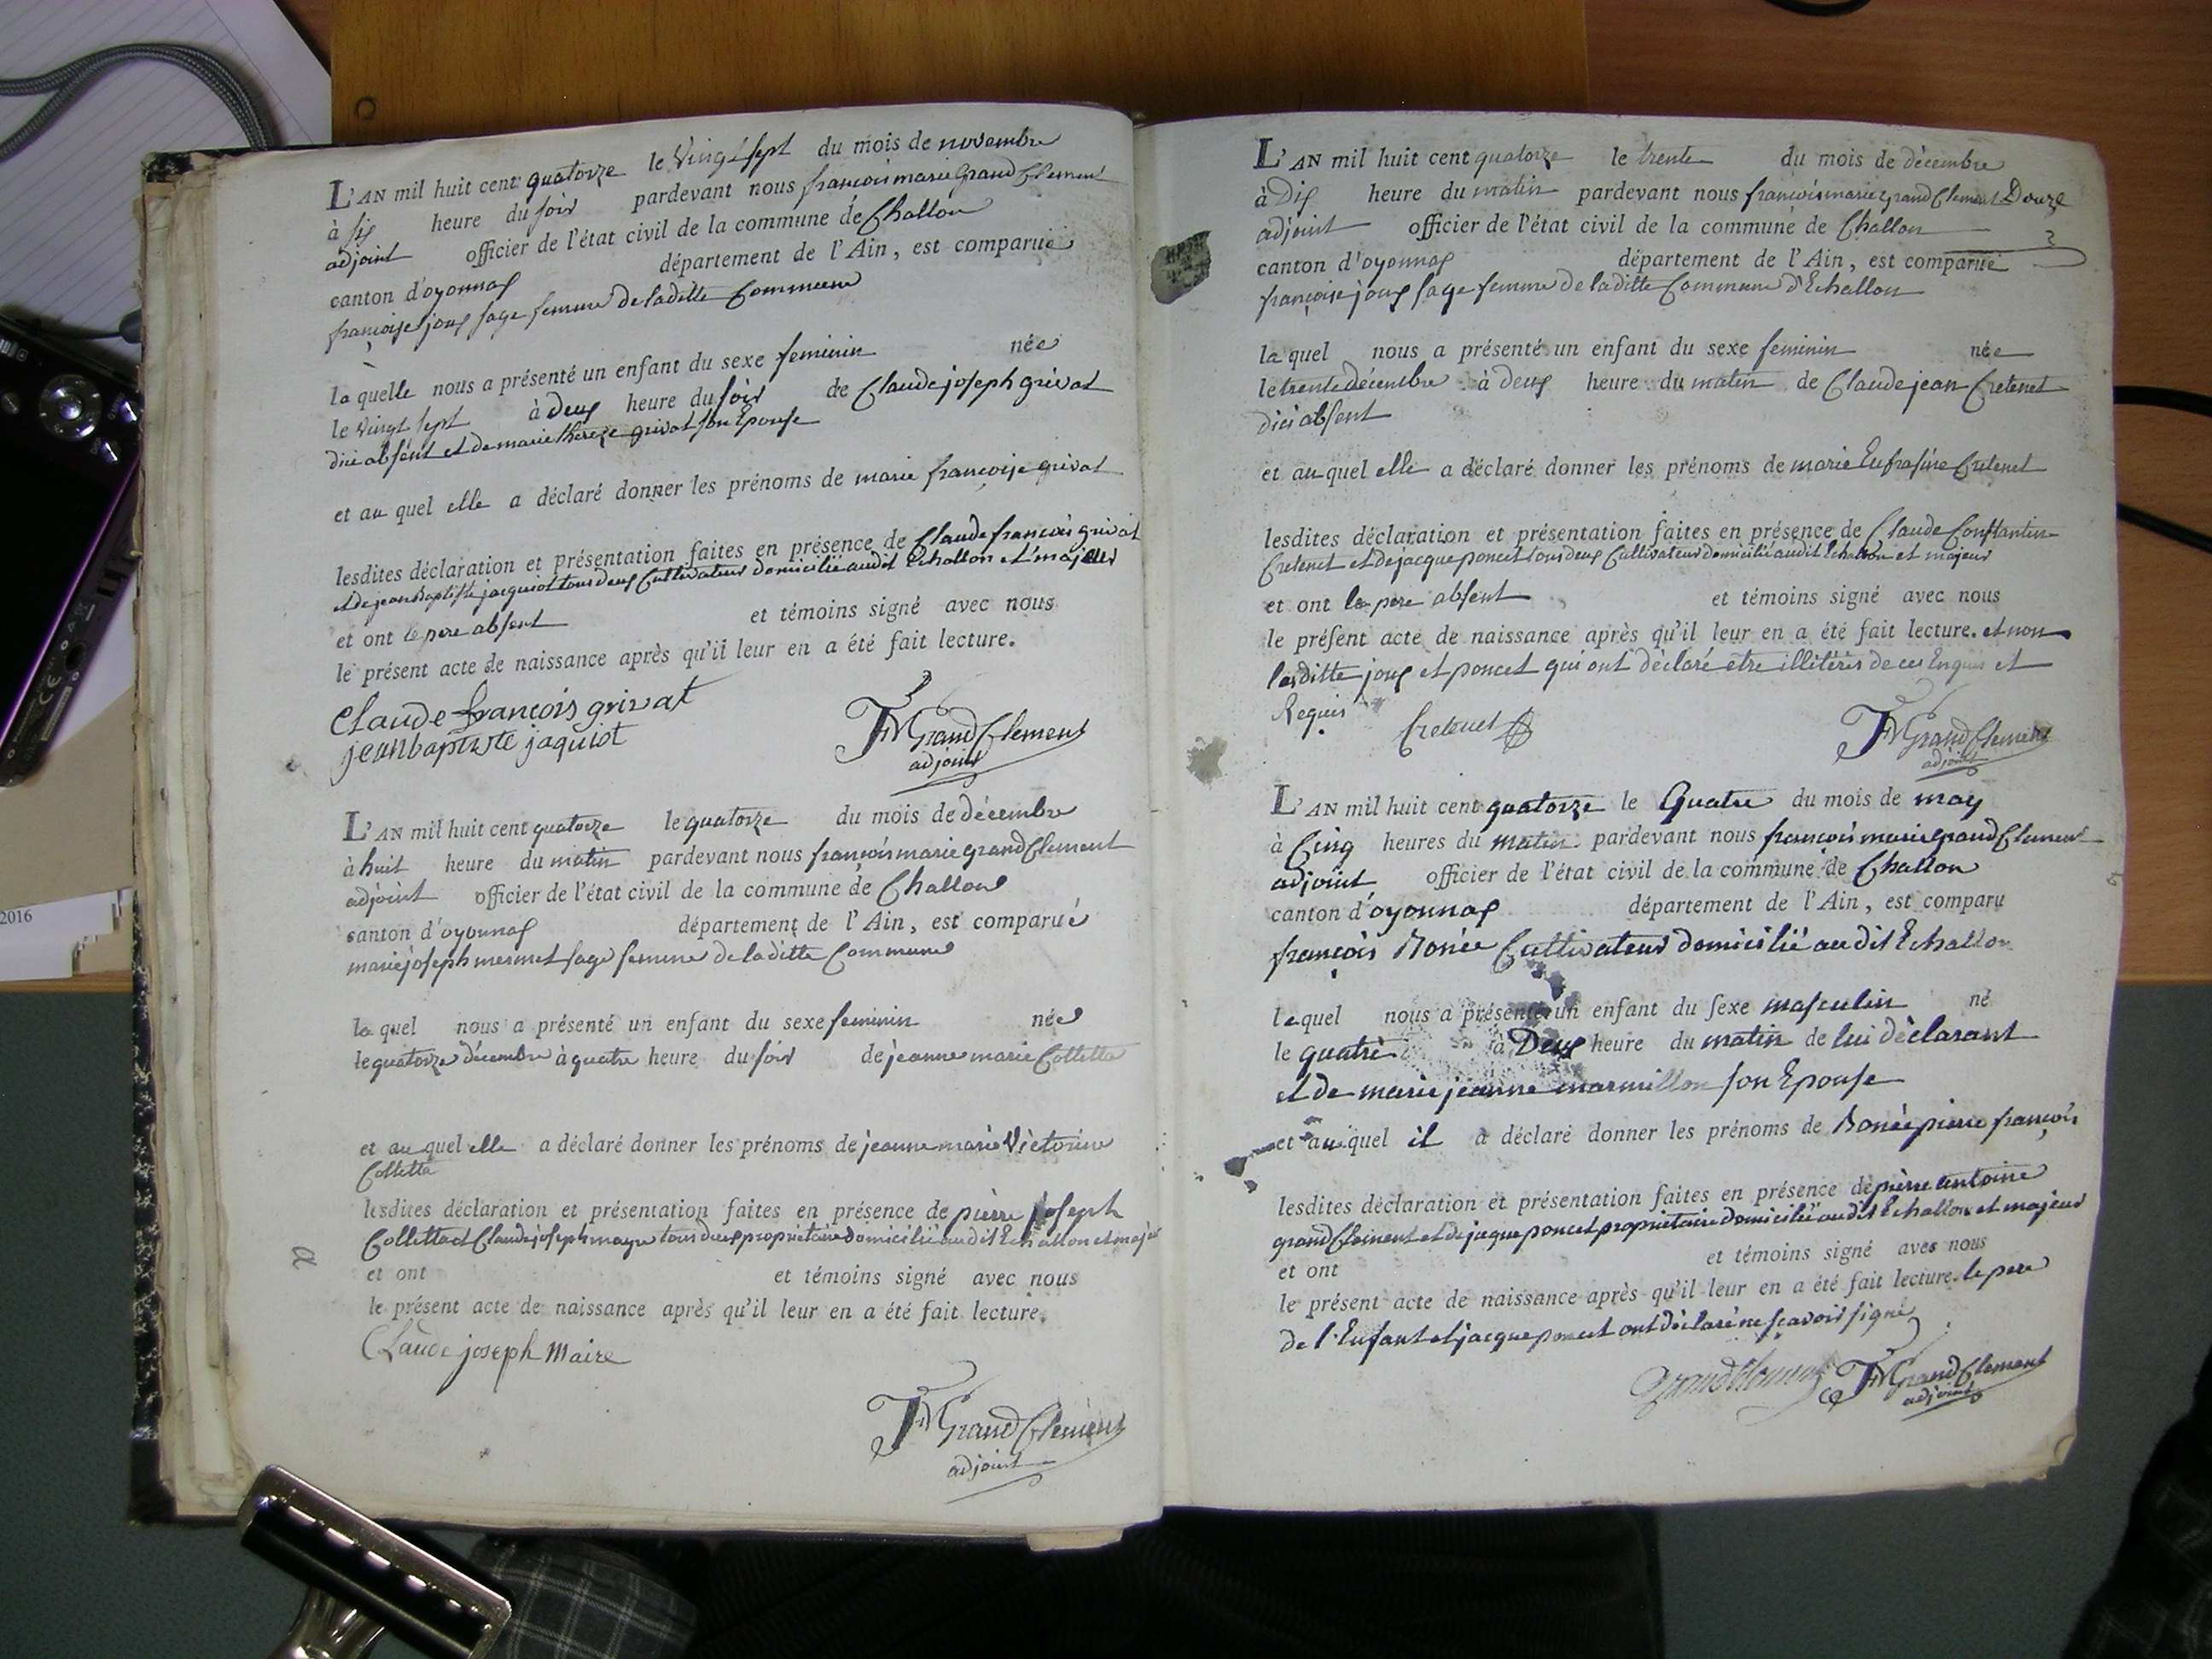 L'AN mil huit cent quatorze le Vingt sept du mois de novembre
à six heure du soir pardevant nous françois marie Grand Clement
adjoint officier de l'état civil de la commune de Challon
canton d'oyonnax département de l'Ain, est comparue
françoise joux sage femme de laditte Commune
laquelle nous a présenté un enfant du sexe feminin née
le Vingt sept à deux heure du soir de Claude joseph grivat
dici absent et de marie thereze grivat son Epouse
et au quel elle a déclaré donner les prénoms de marie françoise grivat
lesdites déclaration et présentation faites en présence de Claude francois grivat
et de jean Baptiste jacquiot tous deux Cultivateur domicilié audit Echallon et majeur
et ont le pere absent et témoins signé avec nous
le présent acte de naissance après qu'il leur en a été fait lecture.
Claude françois grivat
jean baptiste jaquiot
FMGrand Clement
adjoint
L'AN mil huit cent quatorze le quatorze du mois de décembre
à huit heure du matin pardevant nous françois marie grand Clement
adjoint officier de l'état civil de la commune de Challon
canton d'oyonnax département de l'Ain, est comparué
marie joseph mermet sage femme de laditte Commune
la quel nous a présenté un enfant du sexe feminin née
le quatorze décembre à quatre heure du soir de jeanne marie Colletta
et au quel elle a déclaré donner les prénoms de jeanne marie Victorine
Colletta
lesdites déclaration et présentation faites en présence de pierre joseph
Colletta et Claude joseph mayre tous deux proprietaire domicilié audit Echallon et majeur
et ont et témoins signé avec nous
le présent acte de naissance après qu'il leur en a été fait lecture.
Claude joseph Maire
FMGrand Clement
adjoint
L'AN mil huit cent quatorze le trente du mois de décembre
à Dix heure du matin pardevant nous françois marie grand Clement Douze
adjoint officier de l'état civil de la commune de Challon
canton d'oyonnax département de l'Ain, est comparue
françoise joux sage femme de laditte Commune d'Echallon
la quel nous a présenté un enfant du sexe feminin née
le trente décembre à deux heure du matin de Claude jean Cretenet
dici absent
et au quel elle a déclaré donner les prénoms de marie Eufrasine Cretenet
lesdites déclaration et présentation faites en présence de Claude Constantin
Cretenet et de jacque poncet tous deux Cultivateur domicilié audit Echallon et majeur
et ont le pere absent et témoins signé avec nous
le présent acte de naissance après qu'il leur en a été fait lecture. et non
lesditte joux et poncet qui ont déclaré etre illitérés de ces Enquis et
Requis
Cretenet
FMGrand Clement
adjoint
L'AN mil huit cent quatorze le Quatre du mois de may
à Cinq heures du matin pardevant nous françois marie grand Clement
adjoint officier de l'état civil de la commune de Challon
canton d'oyonnax département de l'Ain, est comparu
françois Bonée Cultivateur domicilié audit Echallon
lequel nous a présenté un enfant du sexe masculin né
le quatre à Deux heure du matin de lui déclarant
et de marie jeanne marmillon son Epouse
et au quel il a déclaré donner les prénoms de Bonée pierre françois
lesdites déclaration et présentation faites en présence de pierre antoine
grand Clement et de jacque poncet proprietaire domicilié audit Echallon et majeur
et ont et témoins signé avec nous
le présent acte de naissance après qu'il leur en a été fait lecture. le pere
de l'Enfant et jacque poncet ont déclaré ne scavoir signé
FMGrand Clement
adjoint
2016